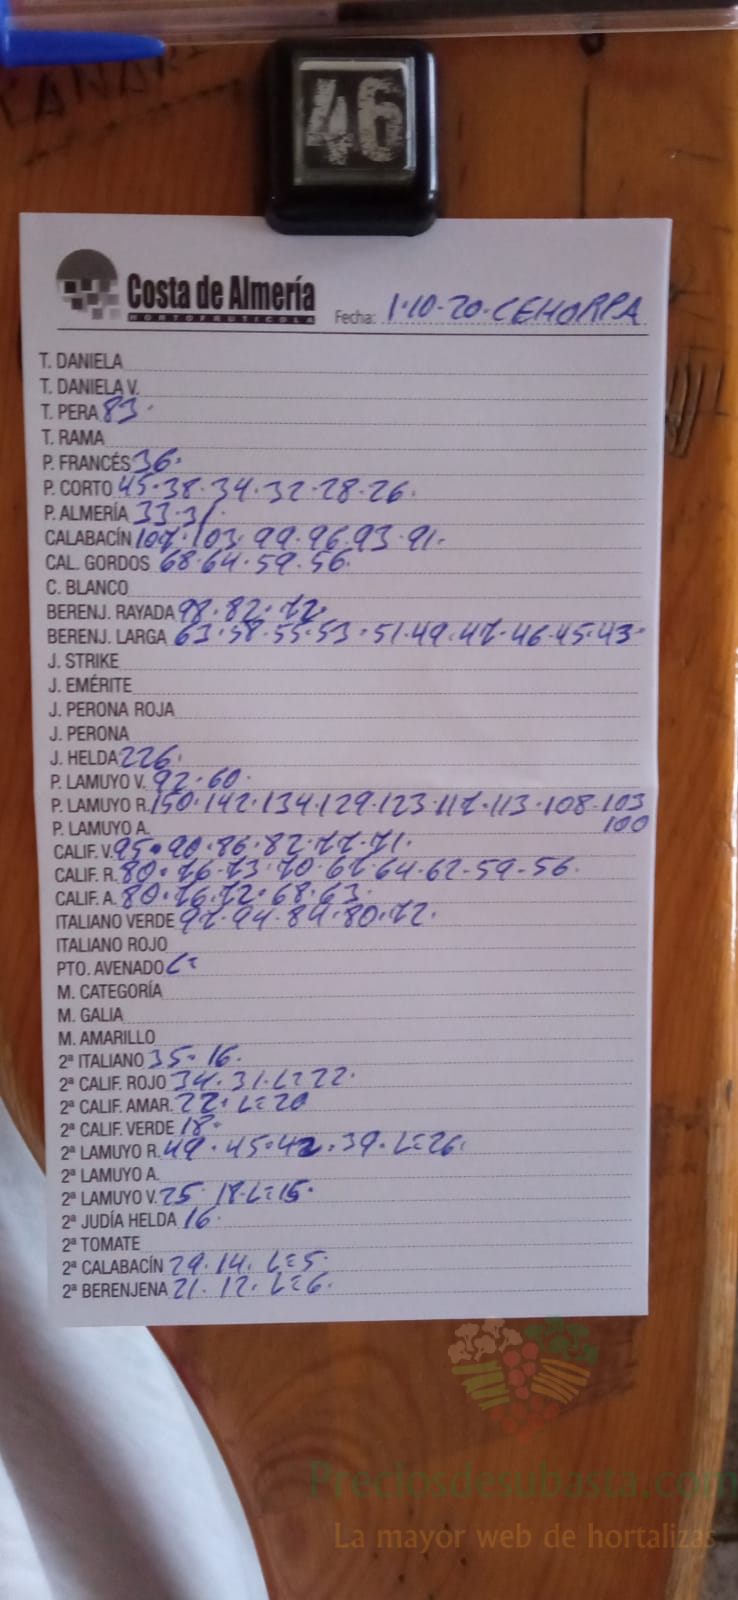 CANAR
46
Costa de Almería
HORTOFRUTICOLA
Fecha: 1·10·20·CEHORPA
T. DANIELA
T. DANIELA V.
T. PERA 83·
T. RAMA
P. FRANCÉS 36·
P. CORTO 45·38·34·32·28·26·
P. ALMERÍA 33·31·
CALABACÍN 107·103·99·96·93·91·
CAL. GORDOS 68·64·59·56·
C. BLANCO
BERENJ. RAYADA 98·82·72·
BERENJ. LARGA 63·58·55·53·51·49·47·46·45·43·
J. STRIKE
J. EMÉRITE
J. PERONA ROJA
J. PERONA
J. HELDA 226·
P. LAMUYO V. 92·60·
P. LAMUYO R. 150·142·134·129·123·117·113·108·103
P. LAMUYO A. 100
CALIF. V. 95·90·86·82·77·71·
CALIF. R. 80·76·73·70·67·64·62-59-56·
CALIF. A. 80·76·72·68·63·
ITALIANO VERDE 97·94·84·80·72·
ITALIANO ROJO
PTO. AVENADO L=
M. CATEGORÍA
M. GALIA
M. AMARILLO
2ª ITALIANO 35·16·
2ª CALIF. ROJO 34·31·L=22·
2ª CALIF. AMAR. 22·L=20
2ª CALIF. VERDE 18·
2ª LAMUYO R. 49·45·42·39·L=26·
2ª LAMUYO A.
2ª LAMUYO V. 25·18·L=15·
2ª JUDÍA HELDA 16·
2ª TOMATE
2ª CALABACÍN 29·14·L=5·
2ª BERENJENA 21·12·L=6·
Preciosdesubasta.com
La mayor web de hortalizas